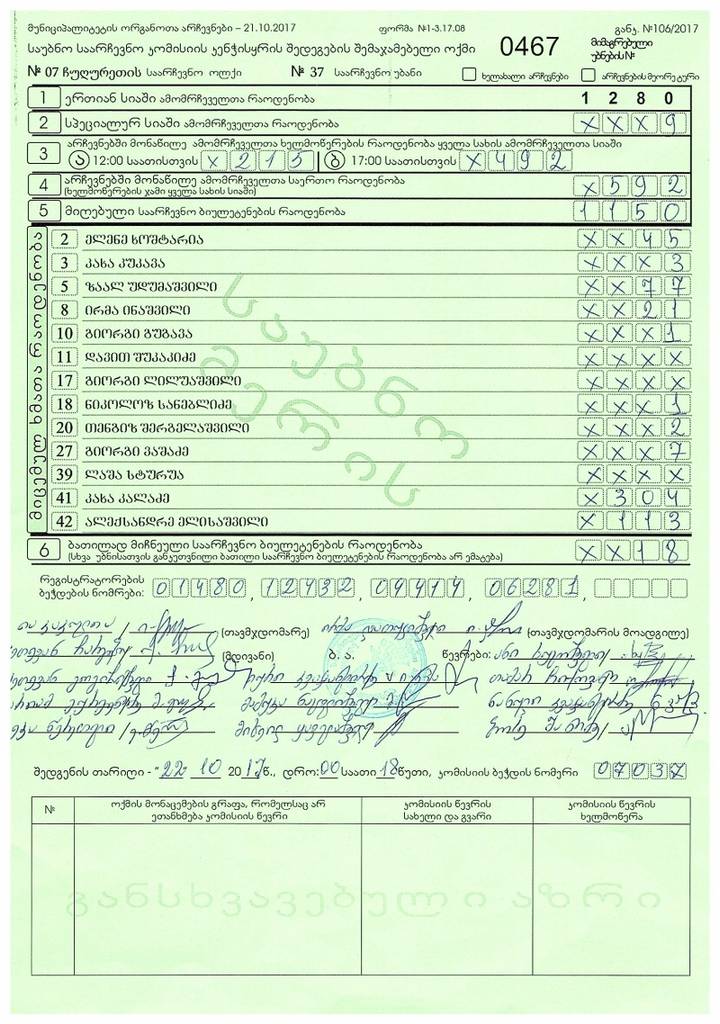 მუნიციპალიტეტის ორგანოთა არჩევნები – 21.10.2017 ფორმა №1-3.17.08 განკ. №106/2017
საუბნო საარჩევნო კომისიის კენჭისყრის შედეგების შემაჯამებელი ოქმი 0467 მიმაგრებული უბნების№
№ 07 ჩუღურეთის საარჩევნო ოლქი № 37 საარჩევნო უბანი ხელახალი არჩევნები არჩევნების მეორე ტური
1 ერთიან სიაში ამომრჩეველთა რაოდენობა 1 2 8 0
2 სპეციალურ სიაში ამომრჩეველთა რაოდენობა X X X 9
3 არჩევნებში მონაწილე ამომრჩეველთა ხელმოწერების რაოდენობა ყველა სახის ამომრჩეველთა სიაში
ა 12:00 საათისთვის X 2 1 5 ბ 17:00 საათისთვის X 4 9 2
4 არჩევნებში მონაწილე ამომრჩეველთა საერთო რაოდენობა X 5 9 2
(ხელმოწერების ჯამი ყველა სახის სიაში)
5 მიღებული საარჩევნო ბიულეტენების რაოდენობა 1 1 5 0
მიცემულ ხმათა რაოდენობა
2 ელენე ხოშტარია X X 4 5
3 კახა კუკავა X X X 3
5 ზაალ უდუმაშვილი X X 7 7
8 ირმა ინაშვილი X X 2 1
10 გიორგი გუგავა X X X 1
11 დავით შუკაკიძე X X X X
17 გიორგი ლილუაშვილი X X X X
18 ნიკოლოზ სანებლიძე X X X 1
20 თენგიზ შერგელაშვილი X X X 2
27 გიორგი ვაშაძე X X X 7
39 ლაშა სტურუა X X X X
41 კახა კალაძე X 3 0 4
42 ალექსანდრე ელისაშვილი X 1 1 3
საუბნო
მერის
6 ბათილად მიჩნეული საარჩევნო ბიულეტენების რაოდენობა X X 1 8
(სხვა უბნისათვის განკუთვნილი ბათილი საარჩევნო ბიულეტენების რაოდენობა არ ემატება)
რეგისტრატორების ბეჭდების ნომრები: 01480, 12432, 09414, 06281,
(თავმჯდომარე) (თავმჯდომარის მოადგილე)
(მდივანი) ბ. ა. წევრები:
შედგენის თარიღი - "22" 10 2017წ., დრო: 00 საათი 18 წუთი, კომისიის ბეჭდის ნომერი 07037
№ ოქმის მონაცემების გრაფა, რომელსაც არ ეთანხმება კომისიის წევრი კომისიის წევრის სახელი და გვარი კომისიის წევრის ხელმოწერა
განსხვავებული აზრი